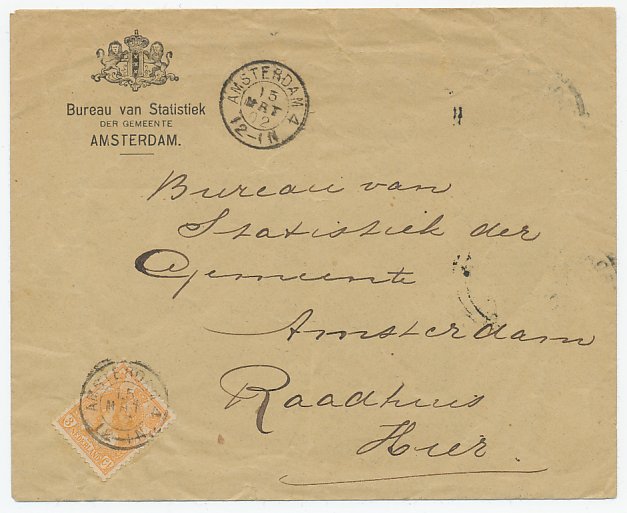 Bureau van Statistiek
DER GEMEENTE
AMSTERDAM.
AMSTERDAM 4
15
MRT
02
12-1N
Bureau van
Statistiek der
Gemeente
Amsterdam
Raadhuis
Hier.
AMSTERDAM 4
15
MRT
12-1N
3
NEDERLAND